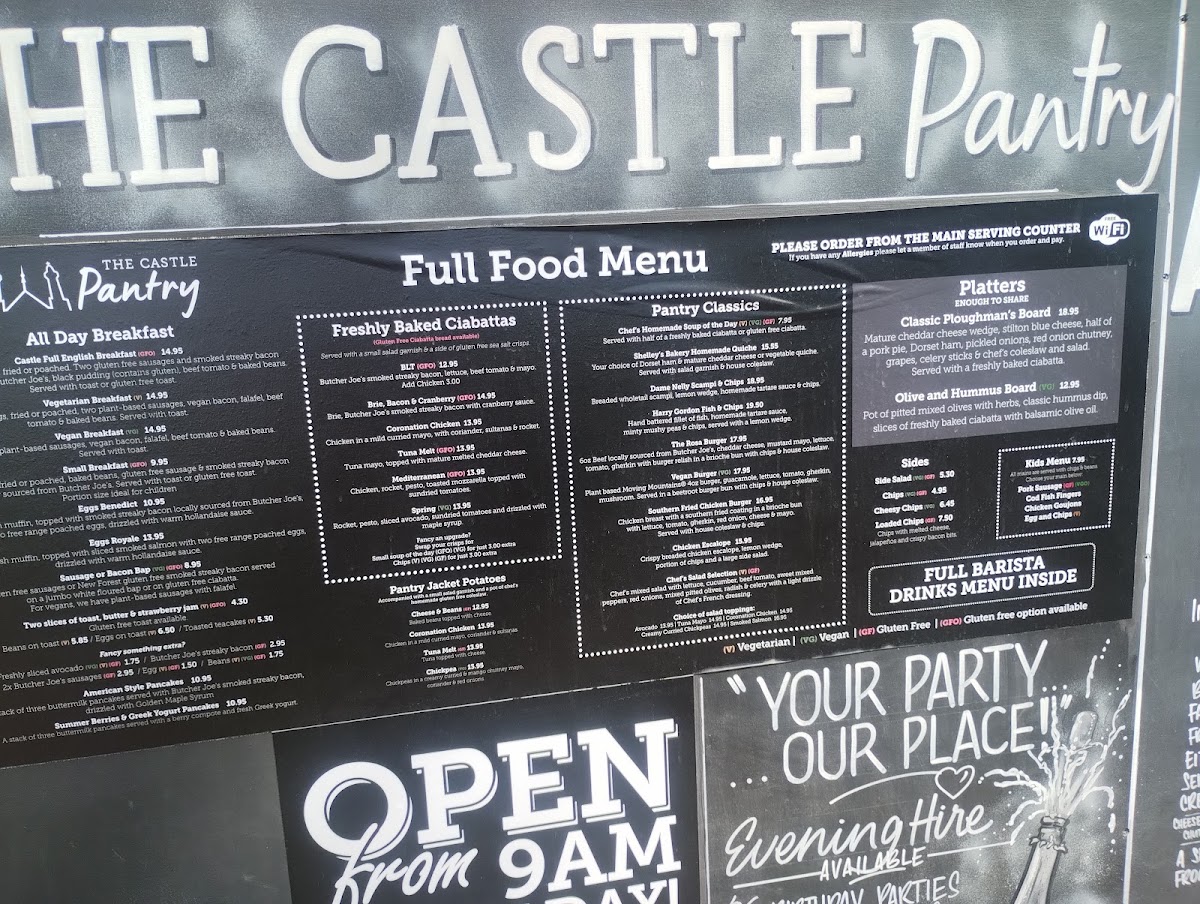 HE CASTLE Pantry
THE CASTLE
Pantry
Full Food Menu
PLEASE ORDER FROM THE MAIN SERVING COUNTER
If you have any Allergies please let a member of staff know when you order and pay.
FREE
WiFi
All Day Breakfast
Castle Full English Breakfast (GFO) 14.95
fried or poached. Two gluten free sausages and smoked streaky bacon
utcher Joe's, black pudding (contains gluten), beef tomato & baked beans.
Served with toast or gluten free toast.
Vegetarian Breakfast (V) 14.95
gs, fried or poached, two plant-based sausages, vegan bacon, falafel, beef
tomato & baked beans. Served with toast.
Vegan Breakfast (VG) 14.95
plant-based sausages, vegan bacon, falafel, beef tomato & baked beans.
Served with toast.
Small Breakfast (GFO) 9.95
fried or poached, baked beans, gluten free sausage & smoked streaky bacon
sourced from Butcher Joe's. Served with toast or gluten free toast.
Portion size ideal for children
Eggs Benedict 10.95
h muffin, topped with smoked streaky bacon locally sourced from Butcher Joe's,
o free range poached eggs, drizzled with warm hollandaise sauce.
Eggs Royale 13.95
sh muffin, topped with sliced smoked salmon with two free range poached eggs,
drizzled with warm hollandaise sauce.
Sausage or Bacon Bap (VG) (GFO) 8.95
en free sausages or New Forest gluten free smoked streaky bacon served
on a jumbo white floured bap or on gluten free ciabatta.
For vegans, we have plant-based sausages with falafel.
Two slices of toast, butter & strawberry jam (V) (GFO) 4.30
Gluten free toast available
Beans on toast (V) 5.85 / Eggs on toast (V) 6.50 / Toasted teacakes (V) 5.30
Fancy something extra?
reshly sliced avocado (VG) (V) (GF) 1.75 / Butcher Joe's streaky bacon (GF) 2.95
2x Butcher Joe's sausages (GF) 2.95 / Egg (V) (GF) 1.50 / Beans (V) (VG) (GF) 1.75
American Style Pancakes 10.95
tack of three buttermilk pancakes served with Butcher Joe's smoked streaky bacon,
drizzled with Golden Maple Syrup
Summer Berries & Greek Yogurt Pancakes 10.95
A stack of three buttermilk pancakes served with a berry compote and fresh Greek yogurt.
Freshly Baked Ciabattas
(Gluten Free Ciabatta bread available)
Served with a small salad garnish & a side of gluten free sea salt crisps.
BLT (GFO) 12.95
Butcher Joe's smoked streaky bacon, lettuce, beef tomato & mayo.
Add Chicken 3.00
Brie, Bacon & Cranberry (GFO) 14.95
Brie, Butcher Joe's smoked streaky bacon with cranberry sauce.
Coronation Chicken 13.95
Chicken in a mild curried mayo, with coriander, sultanas & rocket.
Tuna Melt (GFO) 13.95
Tuna mayo, topped with mature melted cheddar cheese.
Mediterranean (GFO) 13.95
Chicken, rocket, pesto, toasted mozzarella topped with
sundried tomatoes.
Spring (VG) 13.95
Rocket, pesto, sliced avocado, sundried tomatoes and drizzled with
maple syrup.
Fancy an upgrade?
Swap your crisps for
Small soup of the day (GFO) (VG) for just 3.80 extra
Chips (V) (VG) (GF) for just 3.80 extra
Pantry Jacket Potatoes
Accompanied with a small salad garnish and a pot of chef's
homemade gluten free coleslaw
Cheese & Beans (GF) 12.95
Baked beans topped with cheese
Coronation Chicken 13.95
Chicken in a mild curried mayo, coriander & sultanas
Tuna Melt (GF) 13.95
Tuna topped with cheese
Chickpea (VG) 13.95
Chickpeas in a creamy curried & mango chutney mayo,
coriander & red onions
Pantry Classics
Chef's Homemade Soup of the Day (V) (VG) (GF) 7.95
Served with half of a freshly baked ciabatta or gluten free ciabatta.
Shelley's Bakery Homemade Quiche 15.55
Your choice of Dorset ham & mature cheddar cheese or vegetable quiche.
Served with salad garnish & house coleslaw.
Dame Nelly Scampi & Chips 18.95
Breaded wholetail scampi, lemon wedge, homemade tartare sauce & chips.
Harry Gordon Fish & Chips 19.50
Hand battered fillet of fish, homemade tartare sauce,
minty mushy peas & chips, served with a lemon wedge.
The Ross Burger 17.95
6oz Beef locally sourced from Butcher Joe's, cheddar cheese, mustard mayo, lettuce,
tomato, gherkin with burger relish in a brioche bun with chips & house coleslaw.
Vegan Burger (VG) 17.95
Plant based Moving Mountains® 4oz burger, guacamole, lettuce, tomato, gherkin,
mushroom. Served in a beetroot burger bun with chips & house coleslaw.
Southern Fried Chicken Burger 16.95
Chicken breast with a southern fried coating in a brioche bun
with lettuce, tomato, gherkin, red onion, cheese & mayo.
Served with house coleslaw & chips.
Chicken Escalope 15.95
Crispy breaded chicken escalope, lemon wedge,
portion of chips and a large side salad.
Chef's Salad Selection (V) (GF)
Chef's mixed salad with lettuce, cucumber, beef tomato, sweet mixed
peppers, red onions, mixed pitted olives, radish & celery with a light drizzle
of Chef's French dressing.
Choice of salad toppings:
Avocado 13.95 | Tuna Mayo 14.95 | Coronation Chicken 14.95
Creamy Curried Chickpeas 14.95 | Smoked Salmon 16.95
Platters
ENOUGH TO SHARE
Classic Ploughman's Board 18.95
Mature cheddar cheese wedge, stilton blue cheese, half of
a pork pie, Dorset ham, pickled onions, red onion chutney,
grapes, celery sticks & chef's coleslaw and salad.
Served with a freshly baked ciabatta.
Olive and Hummus Board (VG) 12.95
Pot of pitted mixed olives with herbs, classic hummus dip,
slices of freshly baked ciabatta with balsamic olive oil.
Sides
Side Salad (VG) (GF) 5.30
Chips (VG) (GF) 4.95
Cheesy Chips (VG) 6.45
Loaded Chips (GF) 7.50
Chips with melted cheese,
jalapeños and crispy bacon bits.
Kids Menu 7.95
All mains are served with chips & beans
Choose your main below:
Pork Sausage (GF) (VGO)
Cod Fish Fingers
Chicken Goujons
Egg and Chips (V)
FULL BARISTA
DRINKS MENU INSIDE
(V) Vegetarian | (VG) Vegan | (GF) Gluten Free | (GFO) Gluten free option available
OPEN
from 9AM
DAY!
"YOUR PARTY
... OUR PLACE!!"
Evening Hire
AVAILABLE
BIRTHDAY PARTIES